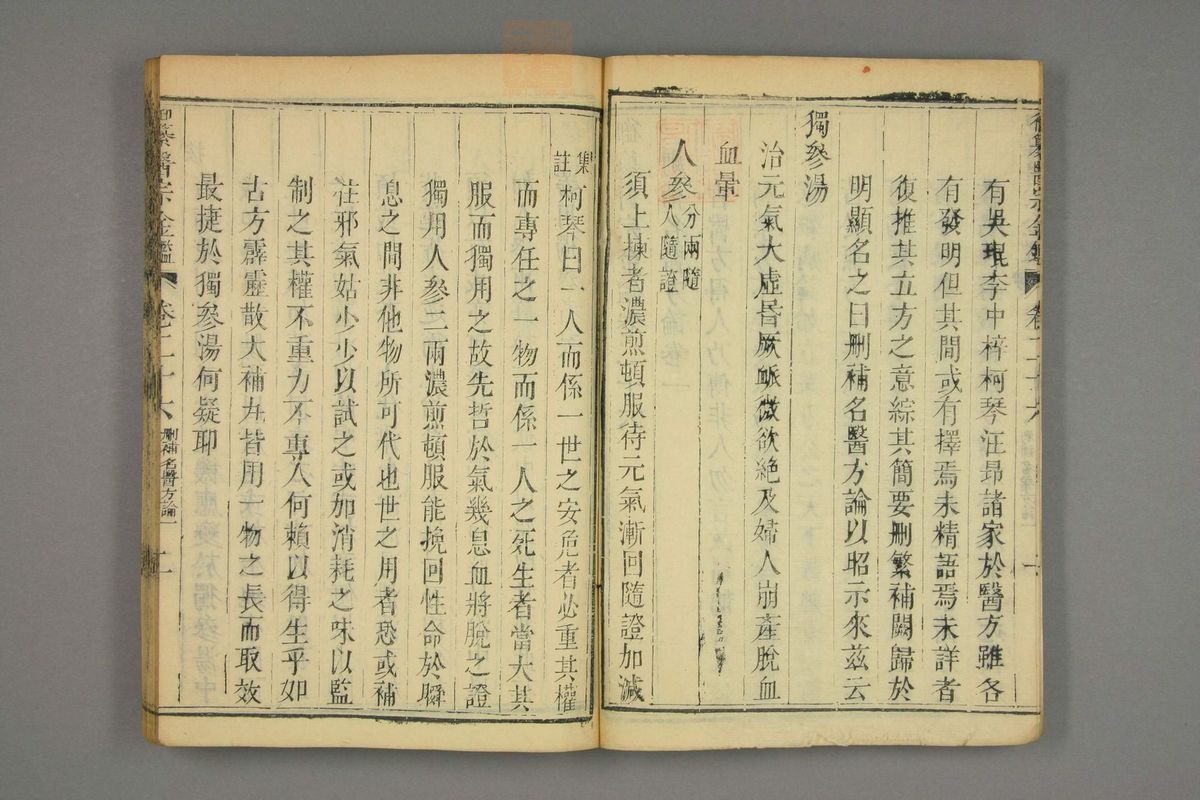 有吳琨李中梓柯琴汪昂諸家於醫方雖各
有發明但其間或有擇焉未精語焉未詳者
復推其立方之意綜其簡要删繁補闕歸於
明顯名之曰删補名醫方論以昭示來兹云
獨參湯
治元氣大虛昏厥脈微欲絶及婦人崩產脫血
血暈
人參 分兩隨人隨證
須上揀者濃煎頓服待元氣漸回隨證加減
集註 柯琴曰一人而係一世之安危者必重其權
而專任之一物而係一人之死生者當大其
服而獨用之故先哲於氣幾息血將脫之證
獨用人參二兩濃煎頓服能挽回性命於瞬
息之間非他物所可代也世之用者恐或補
住邪氣姑少少以試之或加消耗之味以監
制之其權不重力不專人何賴以得生乎如
古方霹靂散大補丸皆用一物之長而取效
最捷於獨參湯何疑耶
御纂醫宗金鑑 卷二十六 删補名醫方論一 二